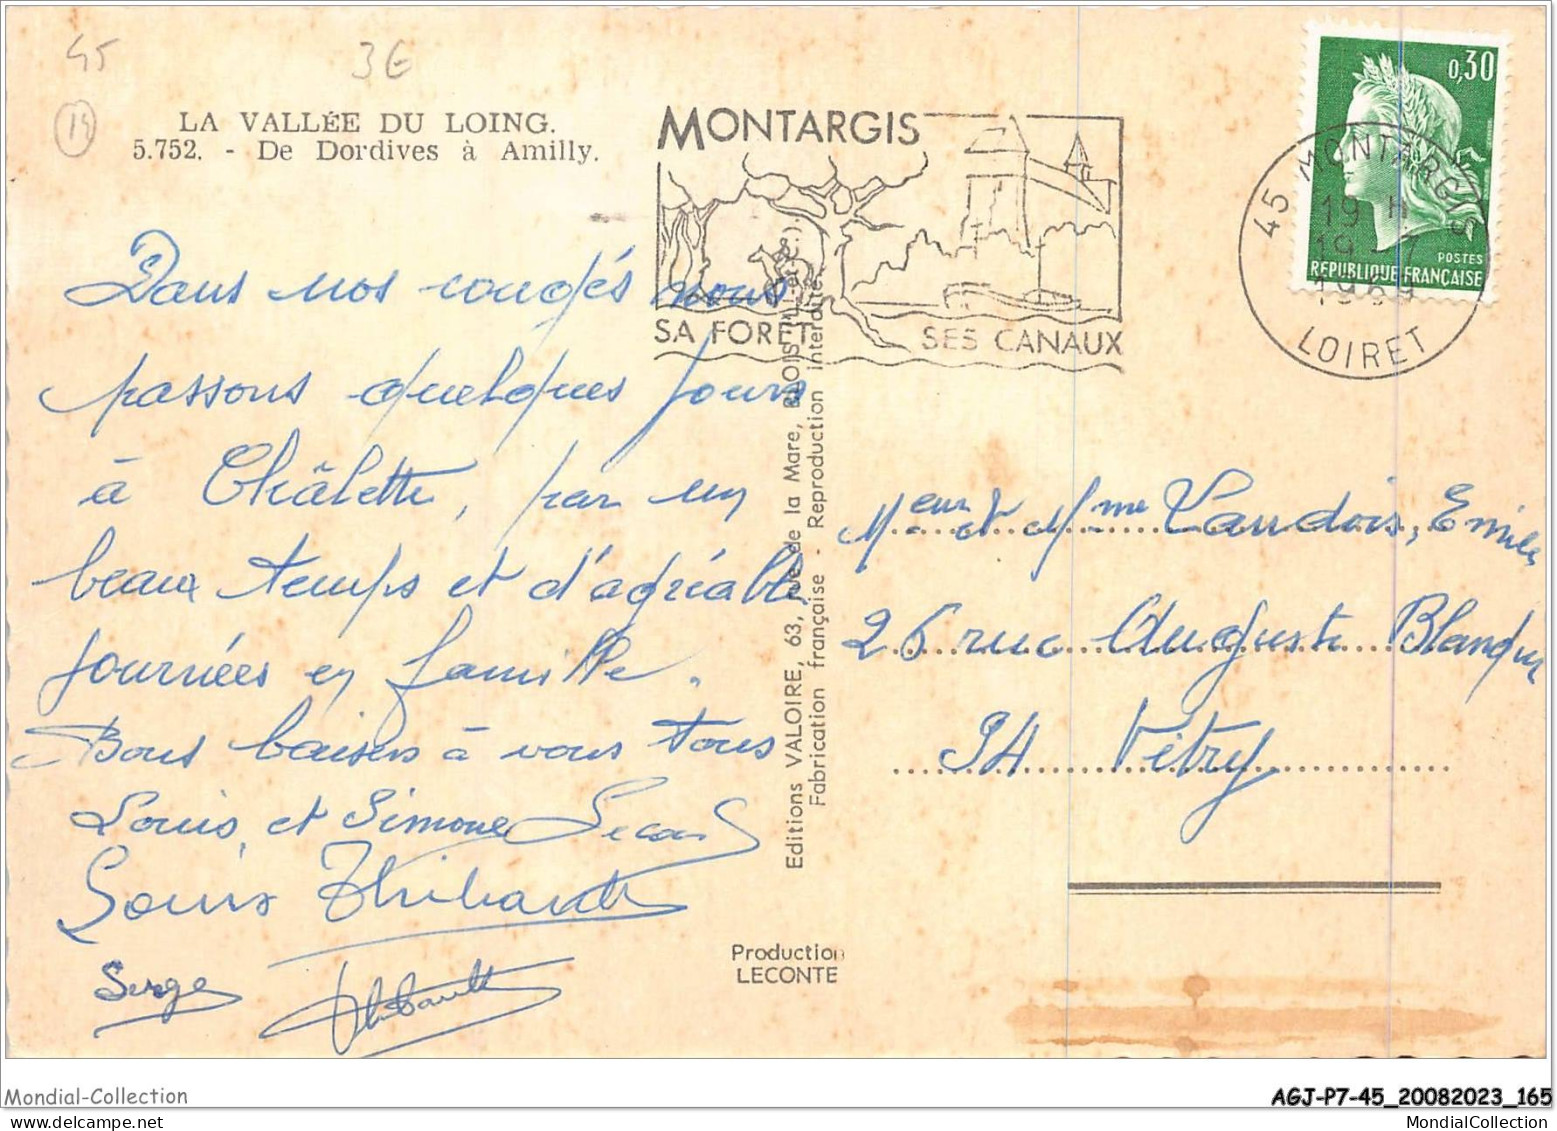 45
3€
LA VALLÉE DU LOING.
5.752. - De Dordives à Amilly.
MONTARGIS
SA FORET
SES CANAUX
0,30
POSTES
REPUBLIQUE FRANÇAISE
45 MONTARGIS
19 H
19 - 7
1969
LOIRET
Dans nos congés nous
passons quelques jours
à Châlette, par un
beau temps et d'agréable
journées en famille.
Bons baisers à vous tous
Louis et Simone
Louis Thibault
Serge Thibault
Editions VALOIRE, 63, rue de la Mare, BLOIS (L.-et-C.).
Fabrication française - Reproduction interdite.
Production
LECONTE
Meur et Mme Vaudois, Emile
26 rue Auguste Blanqui
94 Vitry
Mondial-Collection
AGJ-P7-45_20082023_165
MondialCollection